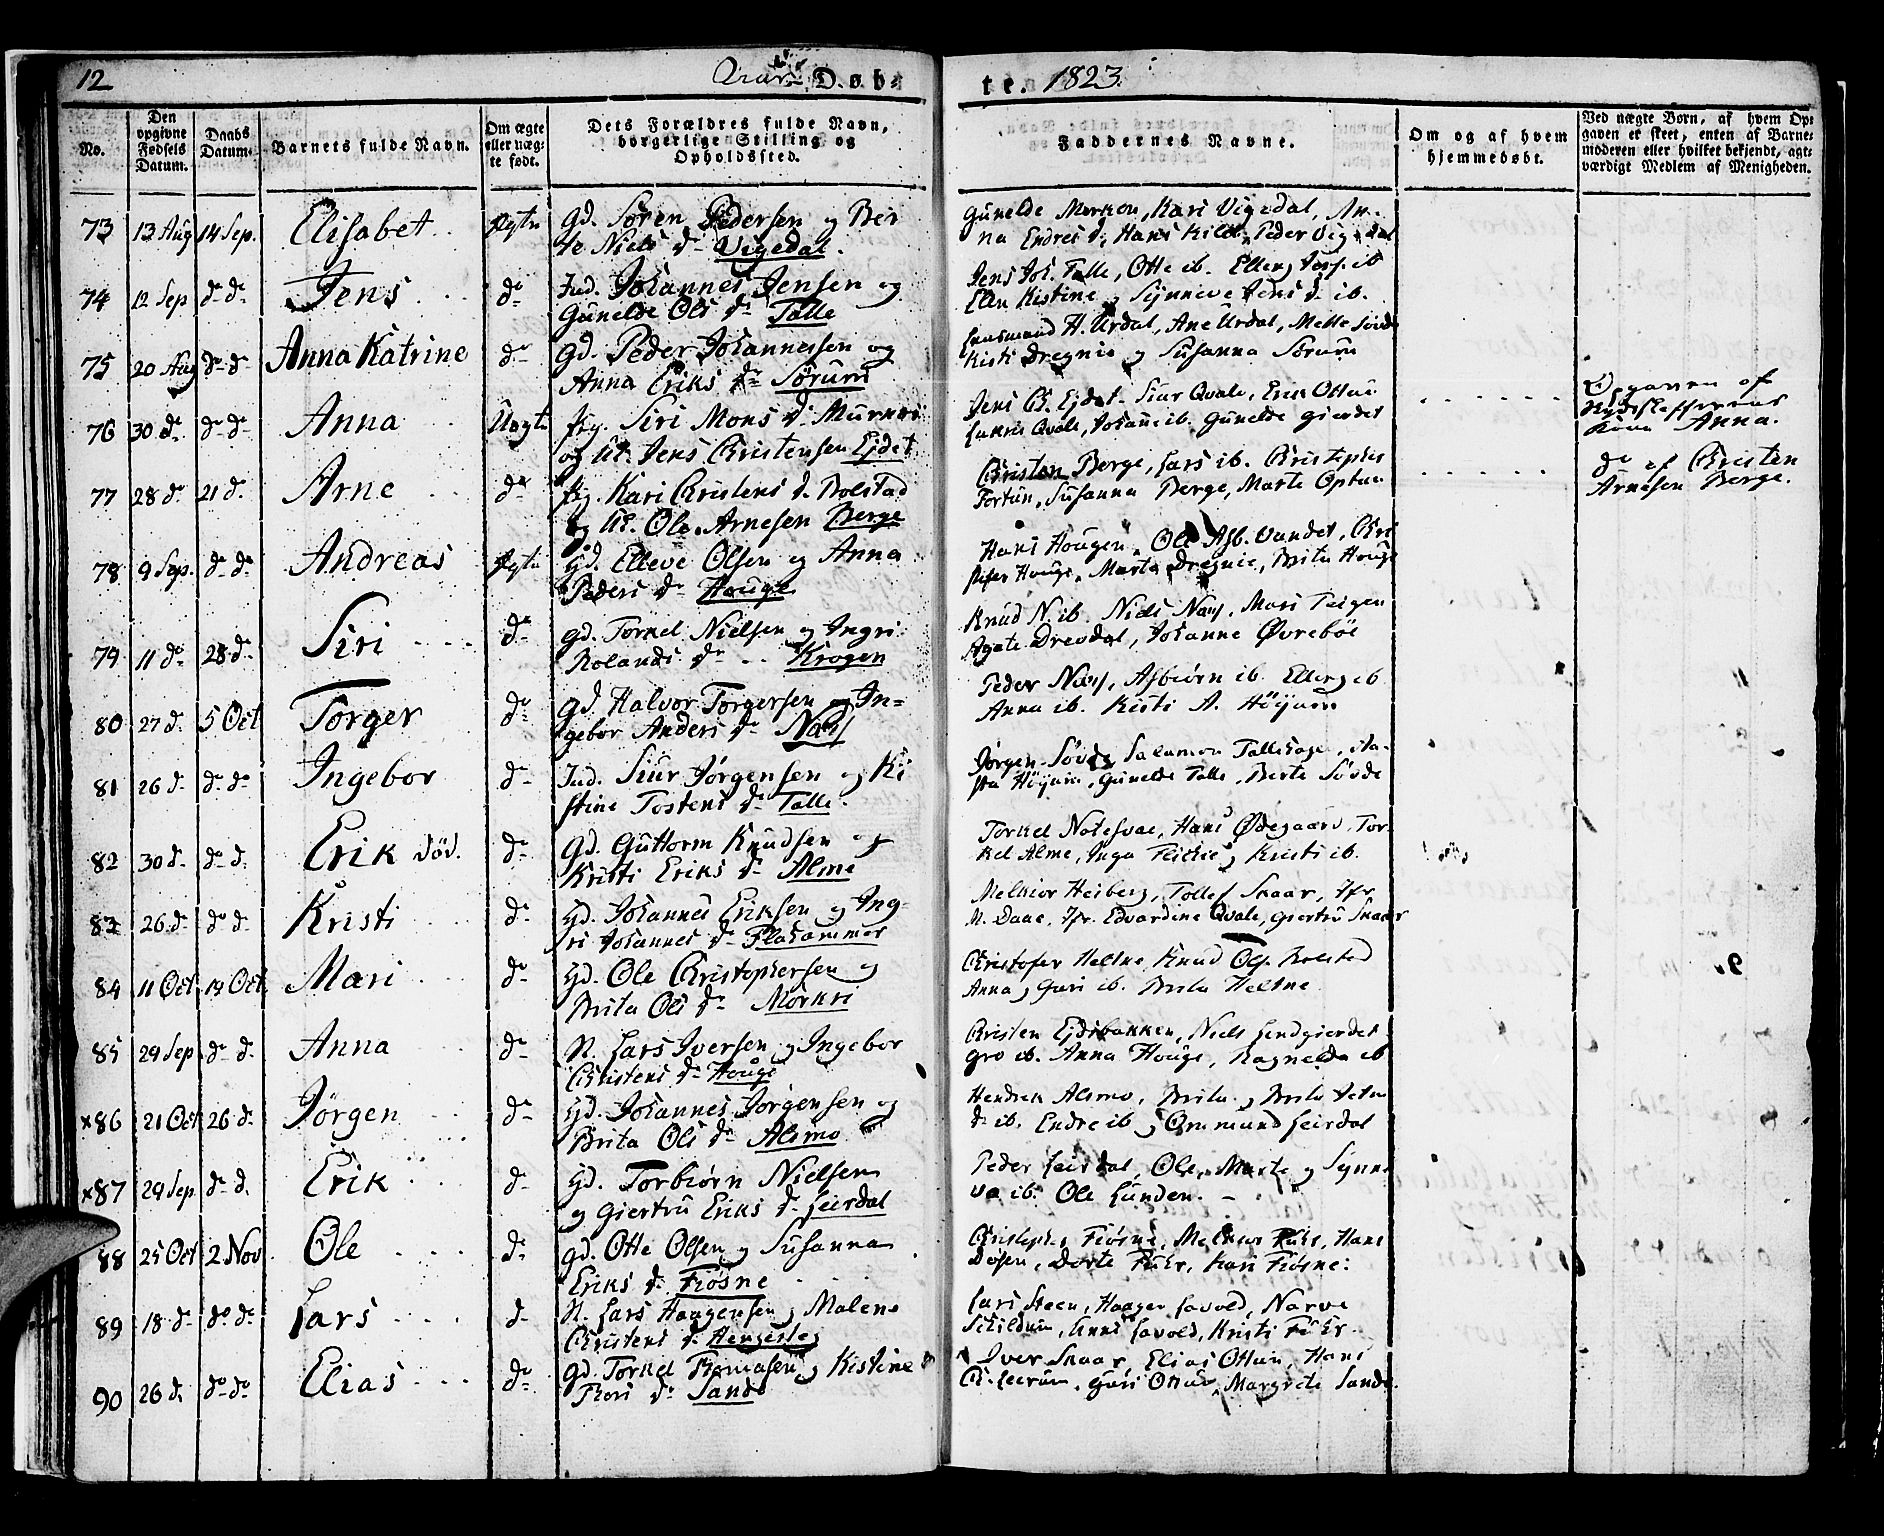 12
Døb=
te. 1823.
No.
Den opgivne Fødsels Datum.
Daabs Datum.
Barnets fulde Navn.
Om ægte eller uægte født.
Dets Forældres fulde Navn, borgerlige Stilling og Opholdssted.
Faddernes Navne.
Om og af hvem hjemmedøbt.
Ved uægte Børn, af hvem Opgaven er skeet, enten af Barnemoderen eller hvilket bekjendt, agtværdigt Medlem af Menigheden.
73 13 Aug 14 Sep. Elisabet Ægte Gd. Søren Pedersen og Ber
te Niels d. Vigedal.
Gunelde Morken, Kari Vigedal, An-
na Endres d., Hans Kilde, Peder Vigedal
74 12 Sep do do Jens do Ind. Johannes Jensen og
Gunelde Ols d. Talle
Jens Joh. Talle, Otte ib. Elleng ib
Ellen Kistine og Synneve Jens d. ib.
75 20 Aug do do Anna Katrine do Gd. Peder Johannessen og
Anna Eriks d. Sørum
H. Urdal, Ane Urdal, Mette
Kisti Dregnie og Susanna Sørum
76 30 do do do Anna Uægte Pig. Siri Mons d. Murkri
og Uk. Jens Christensen Ejdet
Jens Ch. Ejdet, Siur Qvale, Erik Ottun
Qvale, Johanne ib. Gunelde Gierdet
Opgaven af
Anna.
77 28 do 21 d. Arne do Pig. Kari Christens d. Bolstad
og Uk. Ole Arnesen Berge
Christen Berge, Lars ib. Christopher
Fortun, Susanna Berge, Marte Optun
do af Christen
Arnesen Berge.
78 9 Sep. do do Andreas Ægte Gd. Elleve Olsen og Anna
Peders d. Houge
Hans Hougen, Ole Asb. Vandet, Chri
stofer Houge, Marta Dregnie, Brita Houge
79 11 do 28 d. Siri do Gd. Torkel Nielsen og Ingri
Rolands d. Krogen
Knud N. ib. Niels Næs, Mari Teigen
Agate Drevdal, Johanne Øvrebøe
80 27 d. 5 Oct Torger do Gd. Halvor Torgersen og In=
gebor Anders d. Næs
Peder Næs, Asbiørn ib. Elleng ib
Anna ib. Kisti A. Høijum
81 26 d. do do Ingebor do Ind. Siur Jørgensen og Ki
stine Tostens d. Talle.
Jørgen Søvde, Salamon Tallehage,
Høijum, Gunelde Talle, Berte Søvde
82 30 d. do d. Erik død. do Gd. Guttorm Knudsen og
Kristi Eriks d. Alme
Torkel Notesvae, Hans Ødegaard, Tor-
kel Alme, Inga og Kristi ib.
83 26 d. do d. Kristi do Gd. Johannes Eriksen og Ing-
ri Johannes d. Flahammer
Melkior Heiberg, Tollef Snaar, Jfr.
N. Daae, Jfr. Edvardine Qvale, Giertru Snaar
84 11 Oct. 19 Oct. Mari do Gd. Ole Christophersen og
Brita Ols d. Mørkri
Christofer Heltne, Knud Ols. Bolstad
Anna, Guri ib. Brita Heltne
85 29 Sep do d. Anna do N. Lars Iversen og Ingebor
Christens d. Houge
Christen Ejdsbakken, Niels Lendgierdet
Gro ib. Anna Houge, Ragnelda ib
×86 21 Oct 26 d. Jørgen do Gd. Johannes Jørgensen og
Brita Ols d. Alsmo
Hendrik Alsmo, Brita og Brita
d. ib. Endre ib. og Ommund Leirdal
×87 29 Sep do d. Erik d. Gd. Torbiørn Nielsen
og Giertru Eriks d. Leirdal
Peder Leirdal, Ole, Marte og Synne
va ib. Ole Lunden.
88 25 Oct 2 Nov Ole do Gd. Otte Olsen og Susanna
Eriks d. Fiøsne
Christopher Fiøsne, Melkior Fuhr, Hans
Døsen, Dorte Fuhr, Kari Fiøsne.
89 18 d. do do Lars d. N. Lars Haagensen og Malene
Christens d.
Lars Steen, Haagen Lavold, Narve
Lavold, Kristi Fuhr.
90 26 d. do do Elias do Gd. Torkel Thomasen og Kistine
Thors d. Sande
Iver Snaar, Elias Ottun, Hans
Guri Ottun, Margrete Sande.